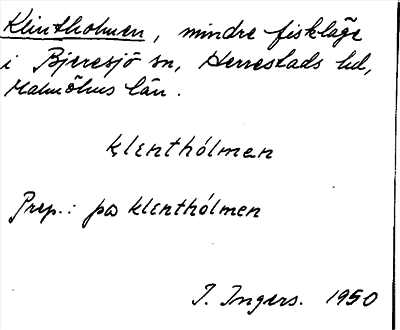 Klintholmen, mindre fiskläge
i Bjeresjö sn, Herrestads hd,
Malmöhus län.
klenthólmen
Prep.: på klenthólmen
I. Ingers. 1950